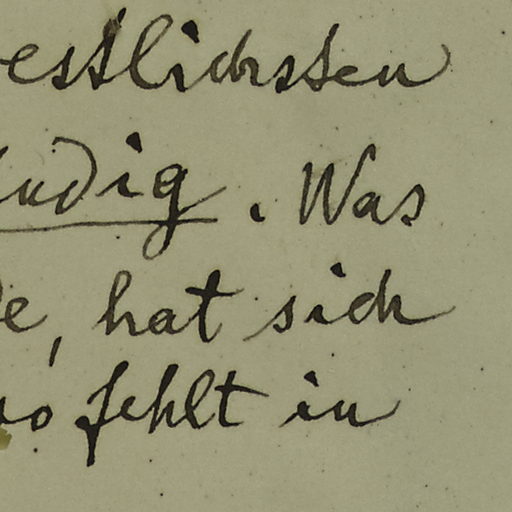 esslichsten
udig. Was
e, hat sich
so fehlt in